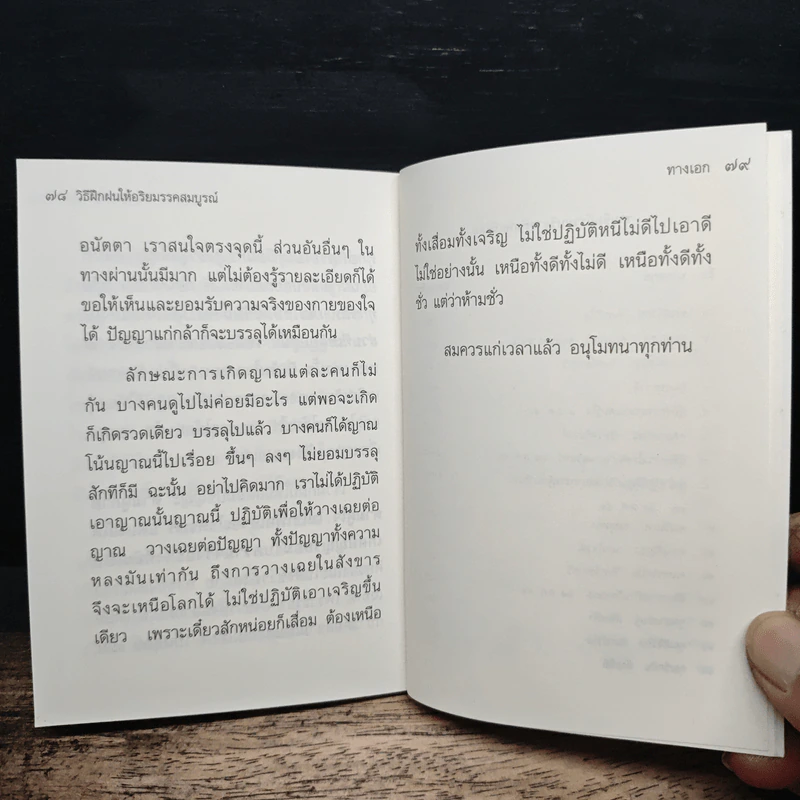 ๗๘ วิธีฝึกฝนให้อริยมรรคสมบูรณ์
อนัตตา เราสนใจตรงจุดนี้ ส่วนอันอื่นๆ ใน
ทางผ่านนั้นมีมาก แต่ไม่ต้องรู้รายละเอียดก็ได้
ขอให้เห็นและยอมรับความจริงของกายของใจ
ได้ ปัญญาแก่กล้าก็จะบรรลุได้เหมือนกัน
ลักษณะการเกิดญาณแต่ละคนก็ไม่
กัน บางคนดูไปไม่ค่อยมีอะไร แต่พอจะเกิด
ก็เกิดรวดเดียว บรรลุไปแล้ว บางคนก็ได้ญาณ
โน้นญาณนี้ไปเรื่อย ขึ้นๆ ลงๆ ไม่ยอมบรรลุ
สักทีก็มี ฉะนั้น อย่าไปคิดมาก เราไม่ได้ปฏิบัติ
เอาญาณนั้นญาณนี้ ปฏิบัติเพื่อให้วางเฉยต่อ
ญาณ วางเฉยต่อปัญญา ทั้งปัญญาทั้งความ
หลงมันเท่ากัน ถึงการวางเฉยในสังขาร
จึงจะเหนือโลกได้ ไม่ใช่ปฏิบัติเอาเจริญขึ้น
เดียว เพราะเดี๋ยวสักหน่อยก็เสื่อม ต้องเหนือ
ทางเอก ๗๙
ทั้งเสื่อมทั้งเจริญ ไม่ใช่ปฏิบัติหนีไม่ดีไปเอาดี
ไม่ใช่อย่างนั้น เหนือทั้งดีทั้งไม่ดี เหนือทั้งดีทั้ง
ชั่ว แต่ว่าห้ามชั่ว
สมควรแก่เวลาแล้ว อนุโมทนาทุกท่าน